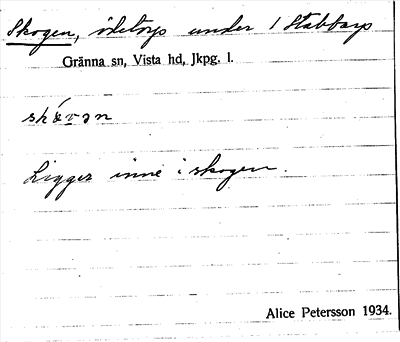 Skogen, ödetorp under 1 Stabbarp
Gränna sn, Vista hd, Jkpg. l.
skǿvən
Ligger inne i skogen.
Alice Petersson 1934.